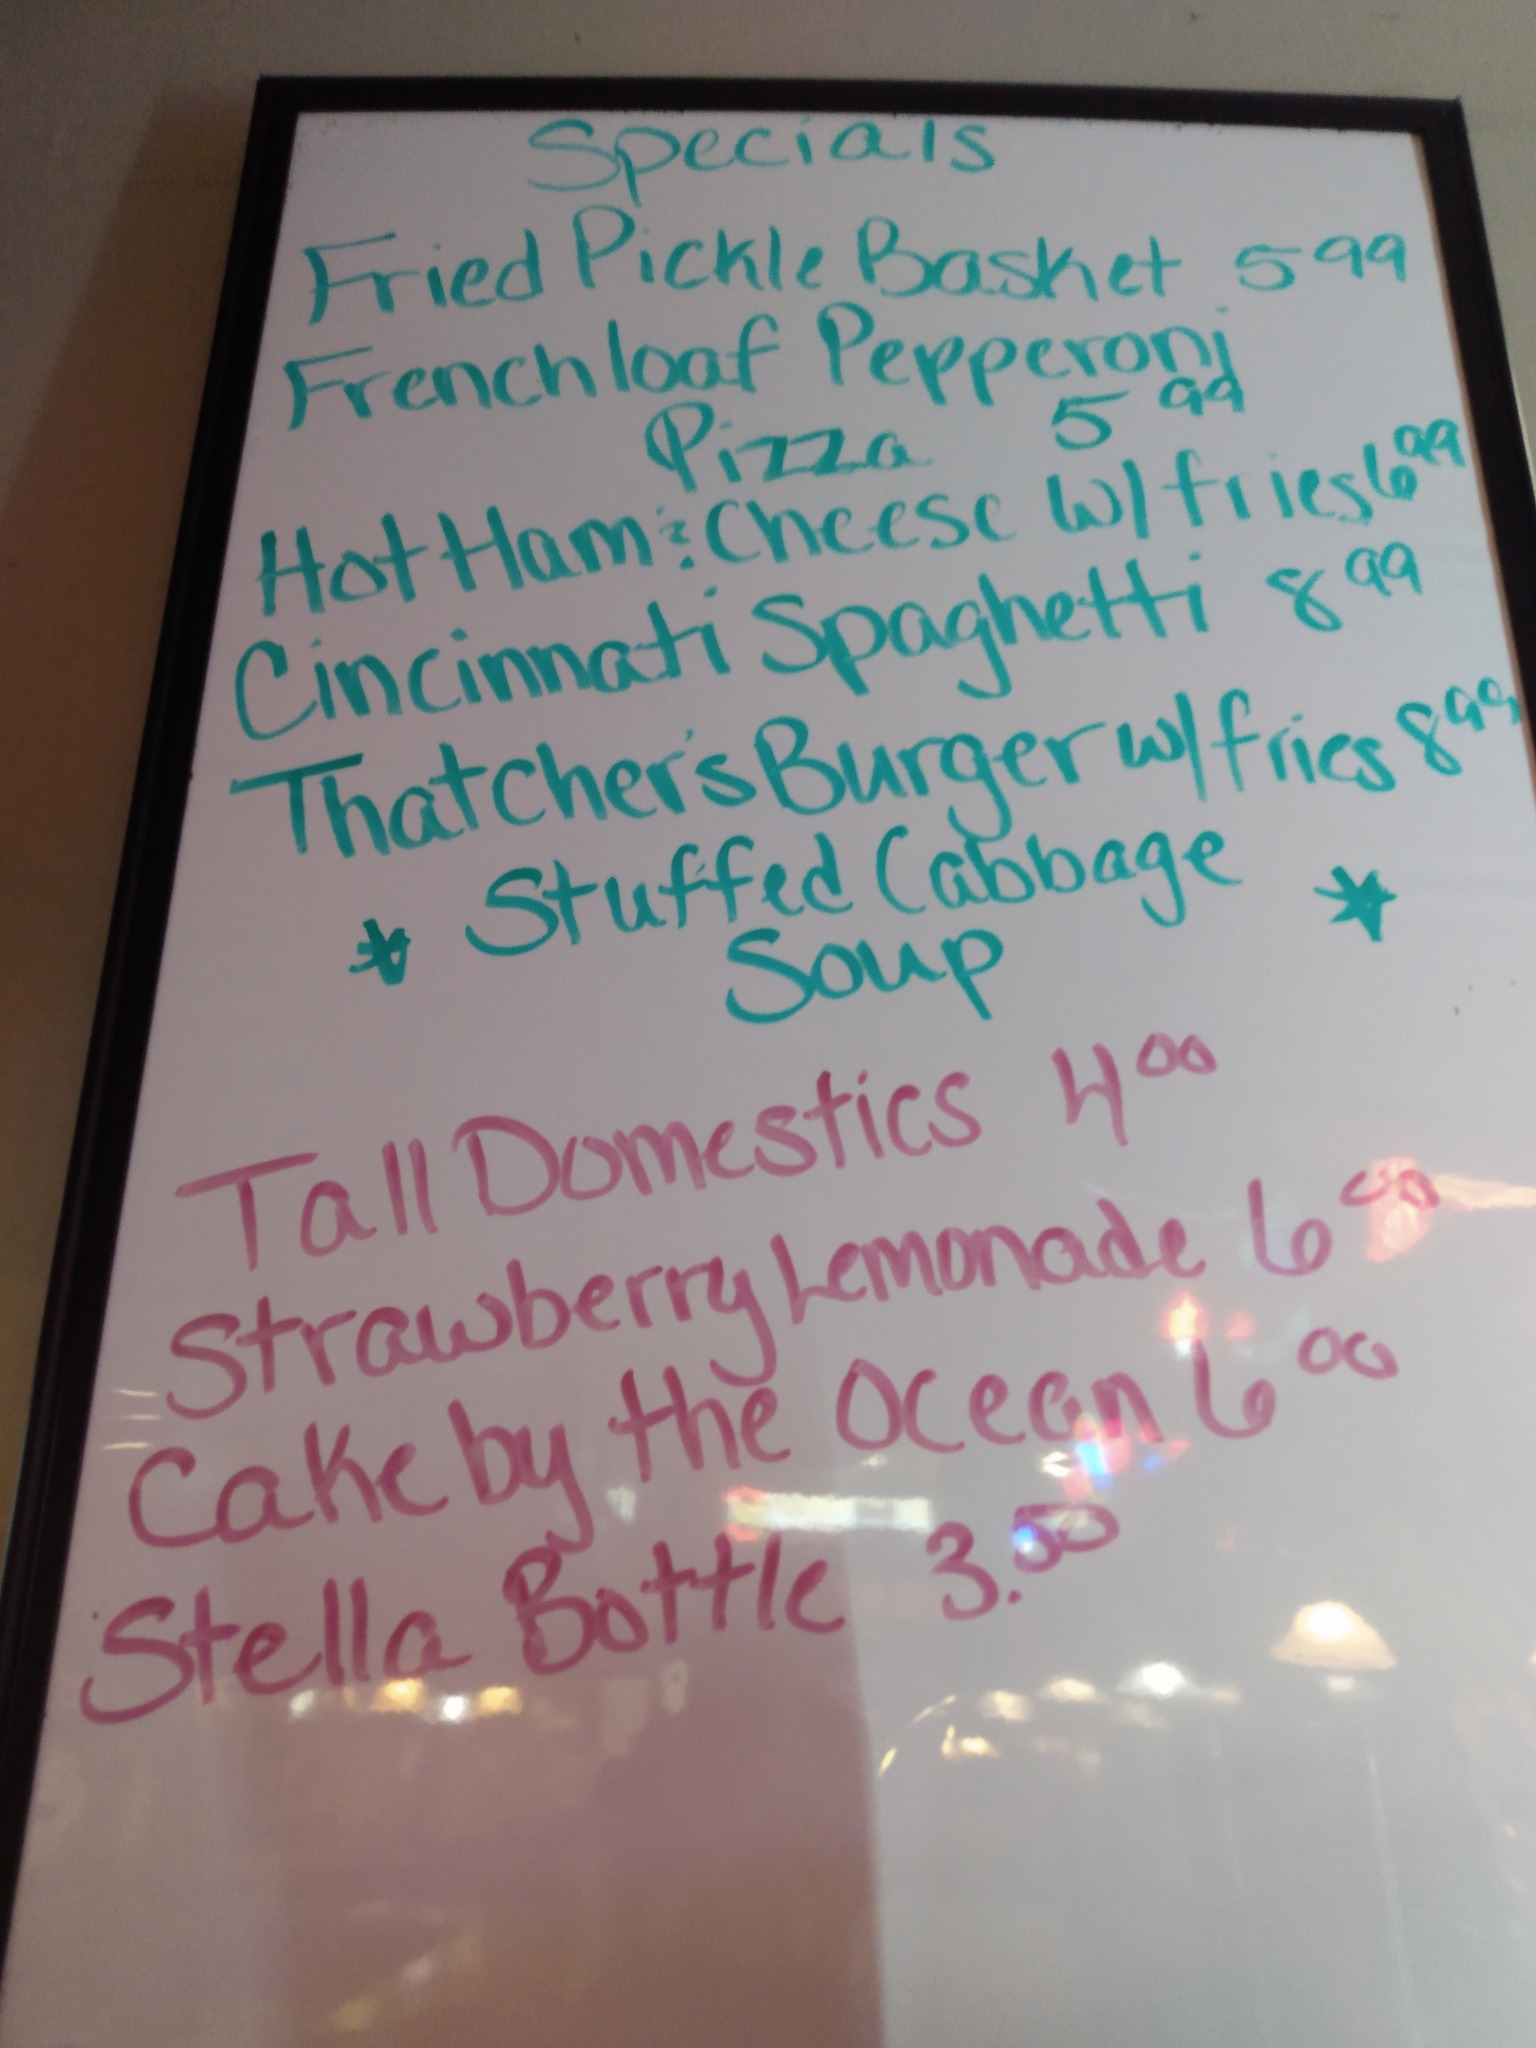 Specials
Fried Pickle Basket 5 99
French loaf Pepperoni
Pizza 5 99
Hot Ham & Cheese w/ fries 6 99
Cincinnati Spaghetti 8 99
Thatcher's Burger w/ fries 8 99
* Stuffed Cabbage *
Soup
Tall Domestics 4 00
Strawberry Lemonade 6 00
Cake by the Ocean 6 00
Stella Bottle 3.50